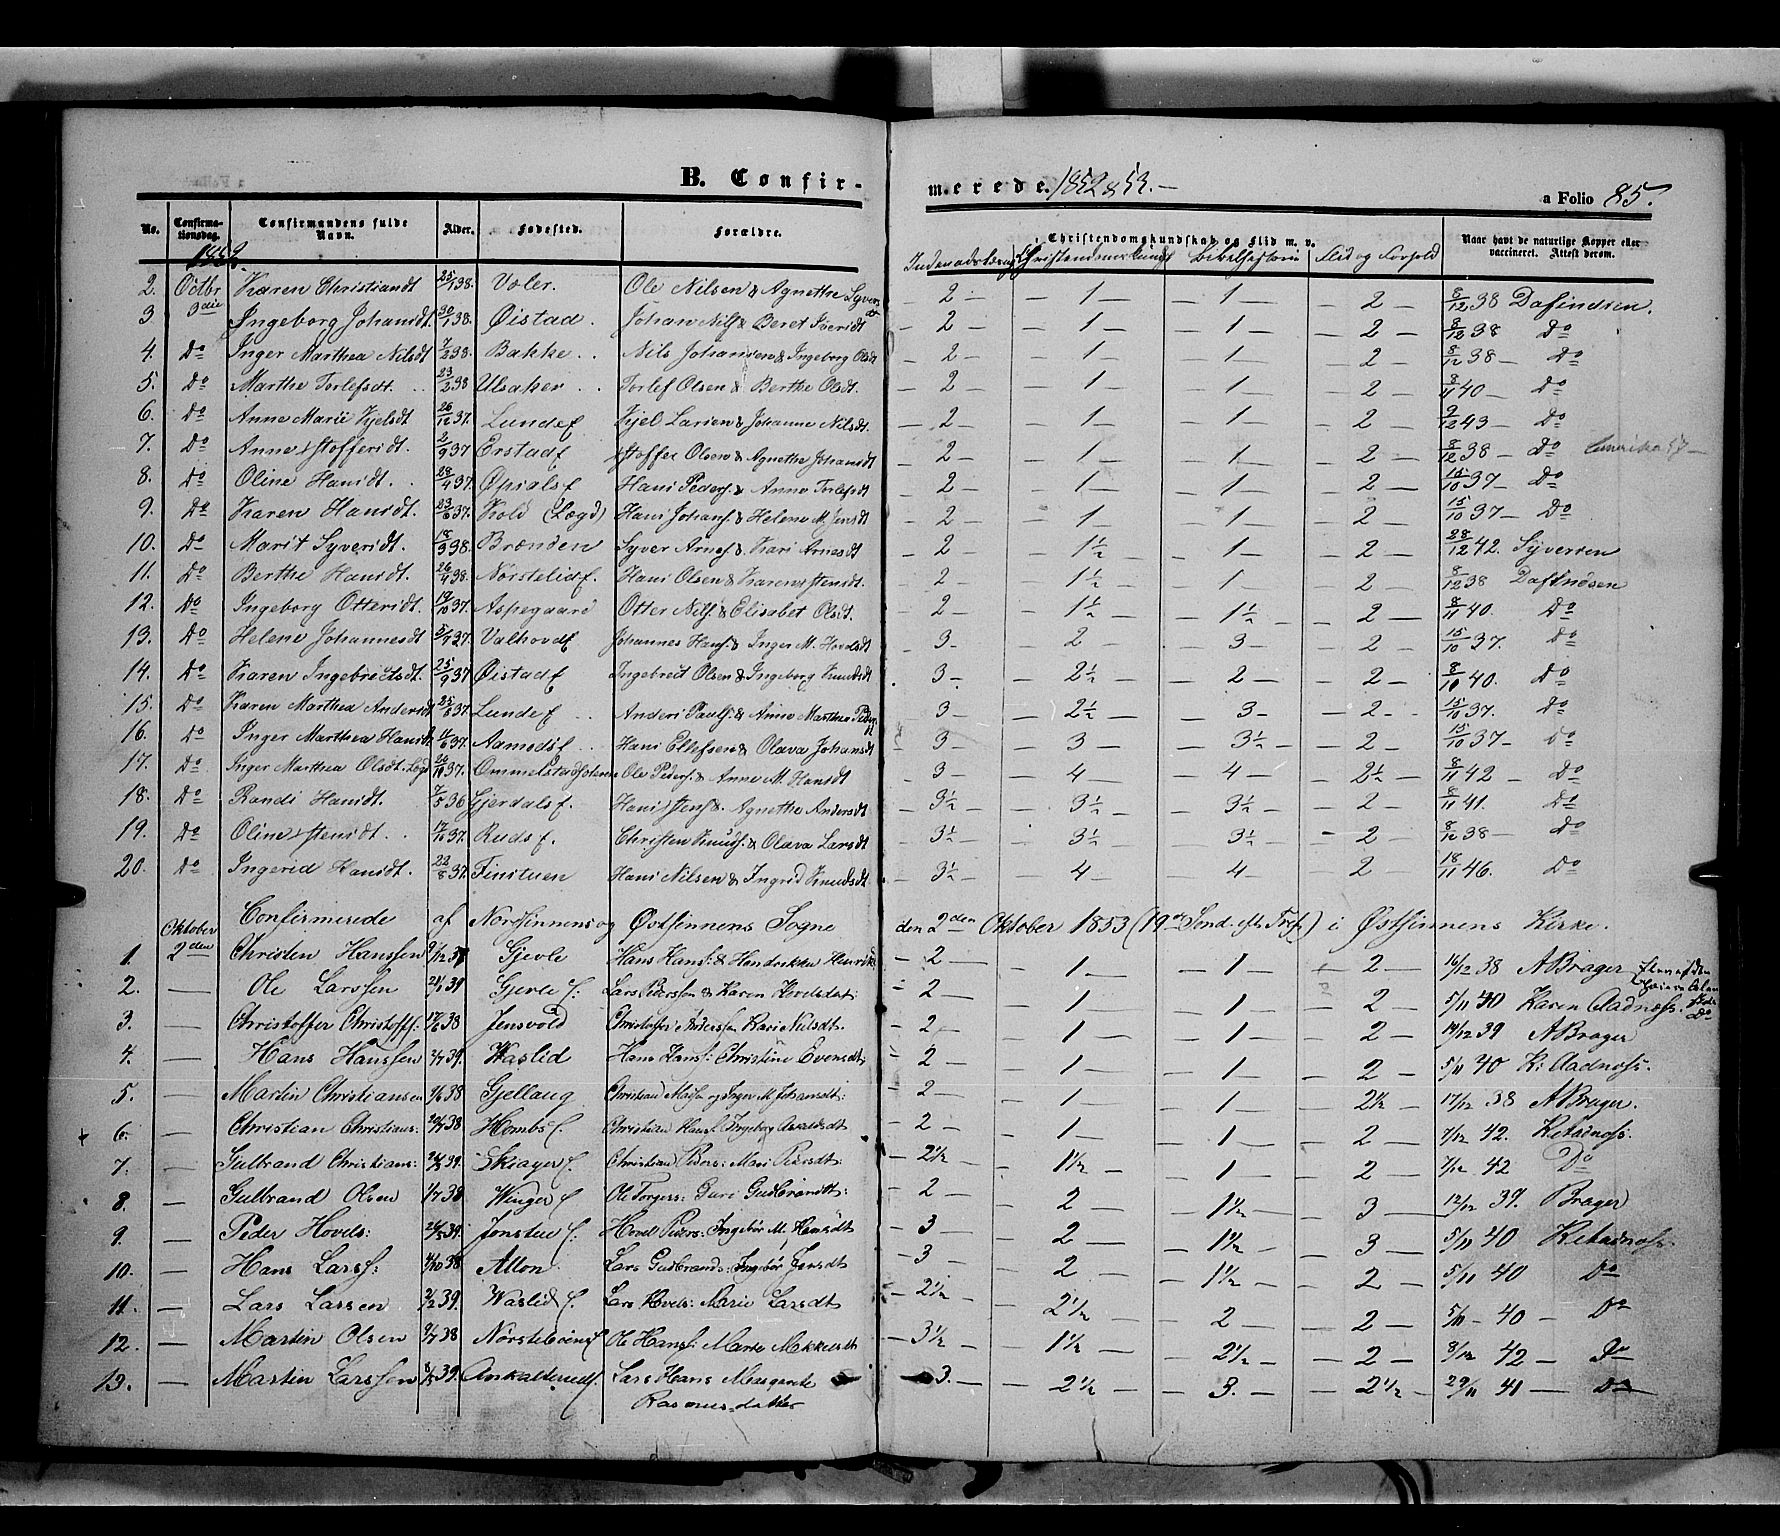 B. Confirmerede. 1852 & 53. — a Folio 85.
No. Confirmationsdag. Confirmandens fulde Navn. Alder. Fødested. Forældre. Christendomskundskab og Flid m. v. Naar havt de naturlige Kopper eller vaccineret. Attest derom.
1852. Christendomskundsk Bibelhistorie Flid og Forhold
2. Octbr 3die Karen Christiansdt 25/1 38. Voler. Ole Nilsen & Agnethe Syversdt — 2 — — 1 — — 1 — — 2 — 8/12 38 Dafindsen.
3 Ingeborg Johansdt. 30/1 38. Øistad. Johan Nilss & Beret Iversdt — 2 — — 1 — — 1 — — 2 — 8/12 38 Do
4. Do Inger Marthea Nilsdt 7/2 38. Bakke. Nils Johansen & Ingeborg Olsdt — 2 — — 1 — — 1 — 2 — 8/12 38 — Do
5. Do Marthe Torlefsdt. 23/2 38 Ulsaker Torlef Olsen & Berthe Olsdt. — 2 — — 1 — — 1 — — 2 — 8/11 40 — Do
6. Do Anne Marie Kjelsdt 26/12 37. Lunde Kjel Larsen & Johanne Nilsdt. — 2 — — 1 — — 1 — — 2 — 9/12 43 — Do
7. Do Anne Stoffersdt. 2/9 37 Erstad Stoffer Olsen & Agnethe Johansdt — 2 — — 1 — — 1 — — 2 — 8/12 38 — Do
8. Do Oline Hansdt. 28/4 37. Opsal Hans Peders. & Anne Torlefsdt — 2 — — 1 — — 1 — — 2 — 15/10 37 — Do
9. Do Karen Hansdt. 23/6 37. Kold (Lægd) Hans Johans. & Helene M. Jensdt — 2 — — 1 — — 1 — — 2 — 15/10 37 — Do
10. Do Marit Syversdt. 18/3 38. Brænden Syver Arnes. & Kari Arnesdt — 2 — — 1½ — — 1 — — 2 — 28/12 42. Syversen
11. Do Berthe Hansdt. 26/4 38. Nørstelid Hans Olsen & Karen Stensdt. — 2 — — 1½ — — 1 — 2 — 8/12 38 Dafindsen
12. Do Ingeborg Ottersdt. 17/10 37. Aspegaard Otter Nils. & Elisabet Olsdt. — 2 — — 1½ — — 1½ — — 2 — 8/11 40. Do
13. Do Helene Johannesdt 5/9 37. Valhovd Johannes Hans. & Inger M. Hovelsdt 3 — — 2 — — 3 — — 2 15/10 37. Do
14. Do Karen Ingebretsdt. 25/9 37 Øistad Ingebret Olsen & Ingeborg Knudsdt 3 — — 2½ — — 2 — — 2 — 8/10 40. Do
15. Do Karen Marthea Andersdt 37. Lunde Anders Pauls. & Anne Marthea Pedersdt 3 — — 2½ — — 3 — — 2 — 15/10 37. Do
16. Do Inger Marthea Hansdt 37. Aamods Hans Ellefsen & Olava Johansdt 3 — — 3 — — 3½ — — 2 — 15/10 37 — Do
17. Do Inger Marthea Olsdt. Lægd 37. Ole Peders. & Anne M. Hansdt — 3 — — 4 — — 4 — — 2½ — 8/11 42 — Do
18. Do Randi Hansdt. 7/5 36 Gjerdal Hans Jens. & Agnethe Andersdt — 3½ — — 3½ — — 3½ — — 2 — 8/11 41. Do
19. Do Oline Stensdt. 17/10 37. Ruds Christen Knuds. & Olava Larsdt — 3½ — — 3½ — 3½ — — 2 — 8/12 38 — Do
20. Do Ingerid Hansdt. 22/8 37. Finstuen Hans Nilsen & Ingrid Knudsdt — 3½ — — 4 — — 4 — 2 — 18/11 46. Do
Confirmerede af Nordsinnens og Østsinnens Sogne den 2den Oktober 1853 (19de Sønd. eft. Tref.) i Østsinnens Kirke.
1. Oktober 2den Christen Hanssen 9/12 37 Gjevle Hans Hans: & Hendrikke Henriks — 2 — 1 — — 1 — — 2 — 16/12 38 A Brager
2. — Ole Larssen 39 Gjevle Lars Pederssen & Karen Hovelsdat: — 2 — — 1 — — 1 — — 2 — 5/11 40 Karen Aadnæss.
3. — Christoffer Christoffs: 38 Jensvold Christoffer Anderss Kari Nilsdt. — 2 — 1 — — 1 — — 2 — 14/12 39 A Brager
4. — Hans Hanssen 39. Waslid Hans Hans: Christine Evensdt: — 2 — — 1 — — 1 — — 2 — 5/11 40 K: Aadnæss:
5. — Martin Christiansen 38 Gjellaug Christian Mads og Inger M Johansdt: — 2 — — 1 — — 1 — 2½ — 17/12 38 A Brager.
6. — Christian Christians: 38 Homb Christian Hans Ingeborg Askildsdt — 2 — — 1 — — 1 — — 2 — 7/12 42. K Aadnæss.
7. — Gulbrand Christians: 39. Skiager Christian Peders: Mari Pedersdt: — 2½ — — 1½ — — 1 — — 2 — 7/12 42 Do
8. — Gulbrand Olsen 1/7 38 Winger Ole Torgers: Guri Gudbrandt: — 2 — — 2 — — 1½ — — 3 — 12/12 39. Brager
9. — Peder Hovels: 39. Jonstue Hovel Peders: Ingebør M. Hansdt — 3 — — 2 — — 1½ — — 3 — 5/11 40 K Aadnæss.
10. — Hans Larss: 4/10 38 Allon Lars Gudbrands: Ingebør Jensdt — 3 — — 2 — — 1½ — — 2 — 5/11 40 Do
11. — Lars Larsen 2/12 39. Waslid Lars Hovels: Marie Larsdt — 2½ — — 2½ — — 2 — — 2 — 5/11 — 40 — Do
12. — Martin Olsen 9/7 38 Ole Hanss: Marte Mikkelsdt — 3½ — — 1½ — — 2½ — — 2 — 8/12 42 — Do
13. — Martin Larssen 8/5 39. Lars Hans Margarete Rasmusdatter — 3. — — 2½ — — 3. — — 2½ — 29/11 41 — Do